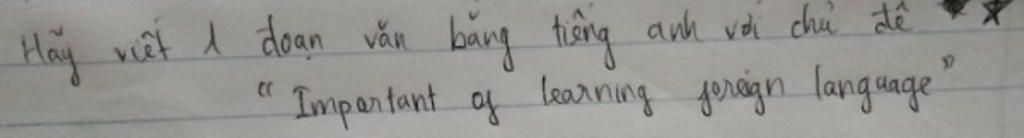 Hãy viết 1 đoạn văn bằng tiếng anh với chủ đề
"Important of learning foreign language"